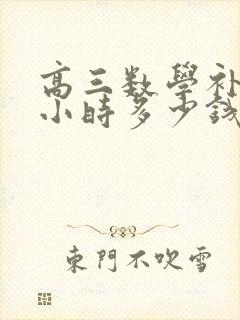 高三数學补
小時多少钱
東門不吹雪